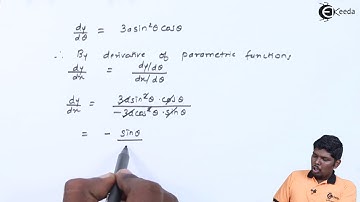 Ekeeda
dy/dθ = 3a sin²θ cosθ
∴ By derivative of parametric functions,
dy/dx = dy/dθ / dx/dθ
dy/dx = 3a sin²θ · cosθ / -3a cos²θ · sinθ
= - sinθ /